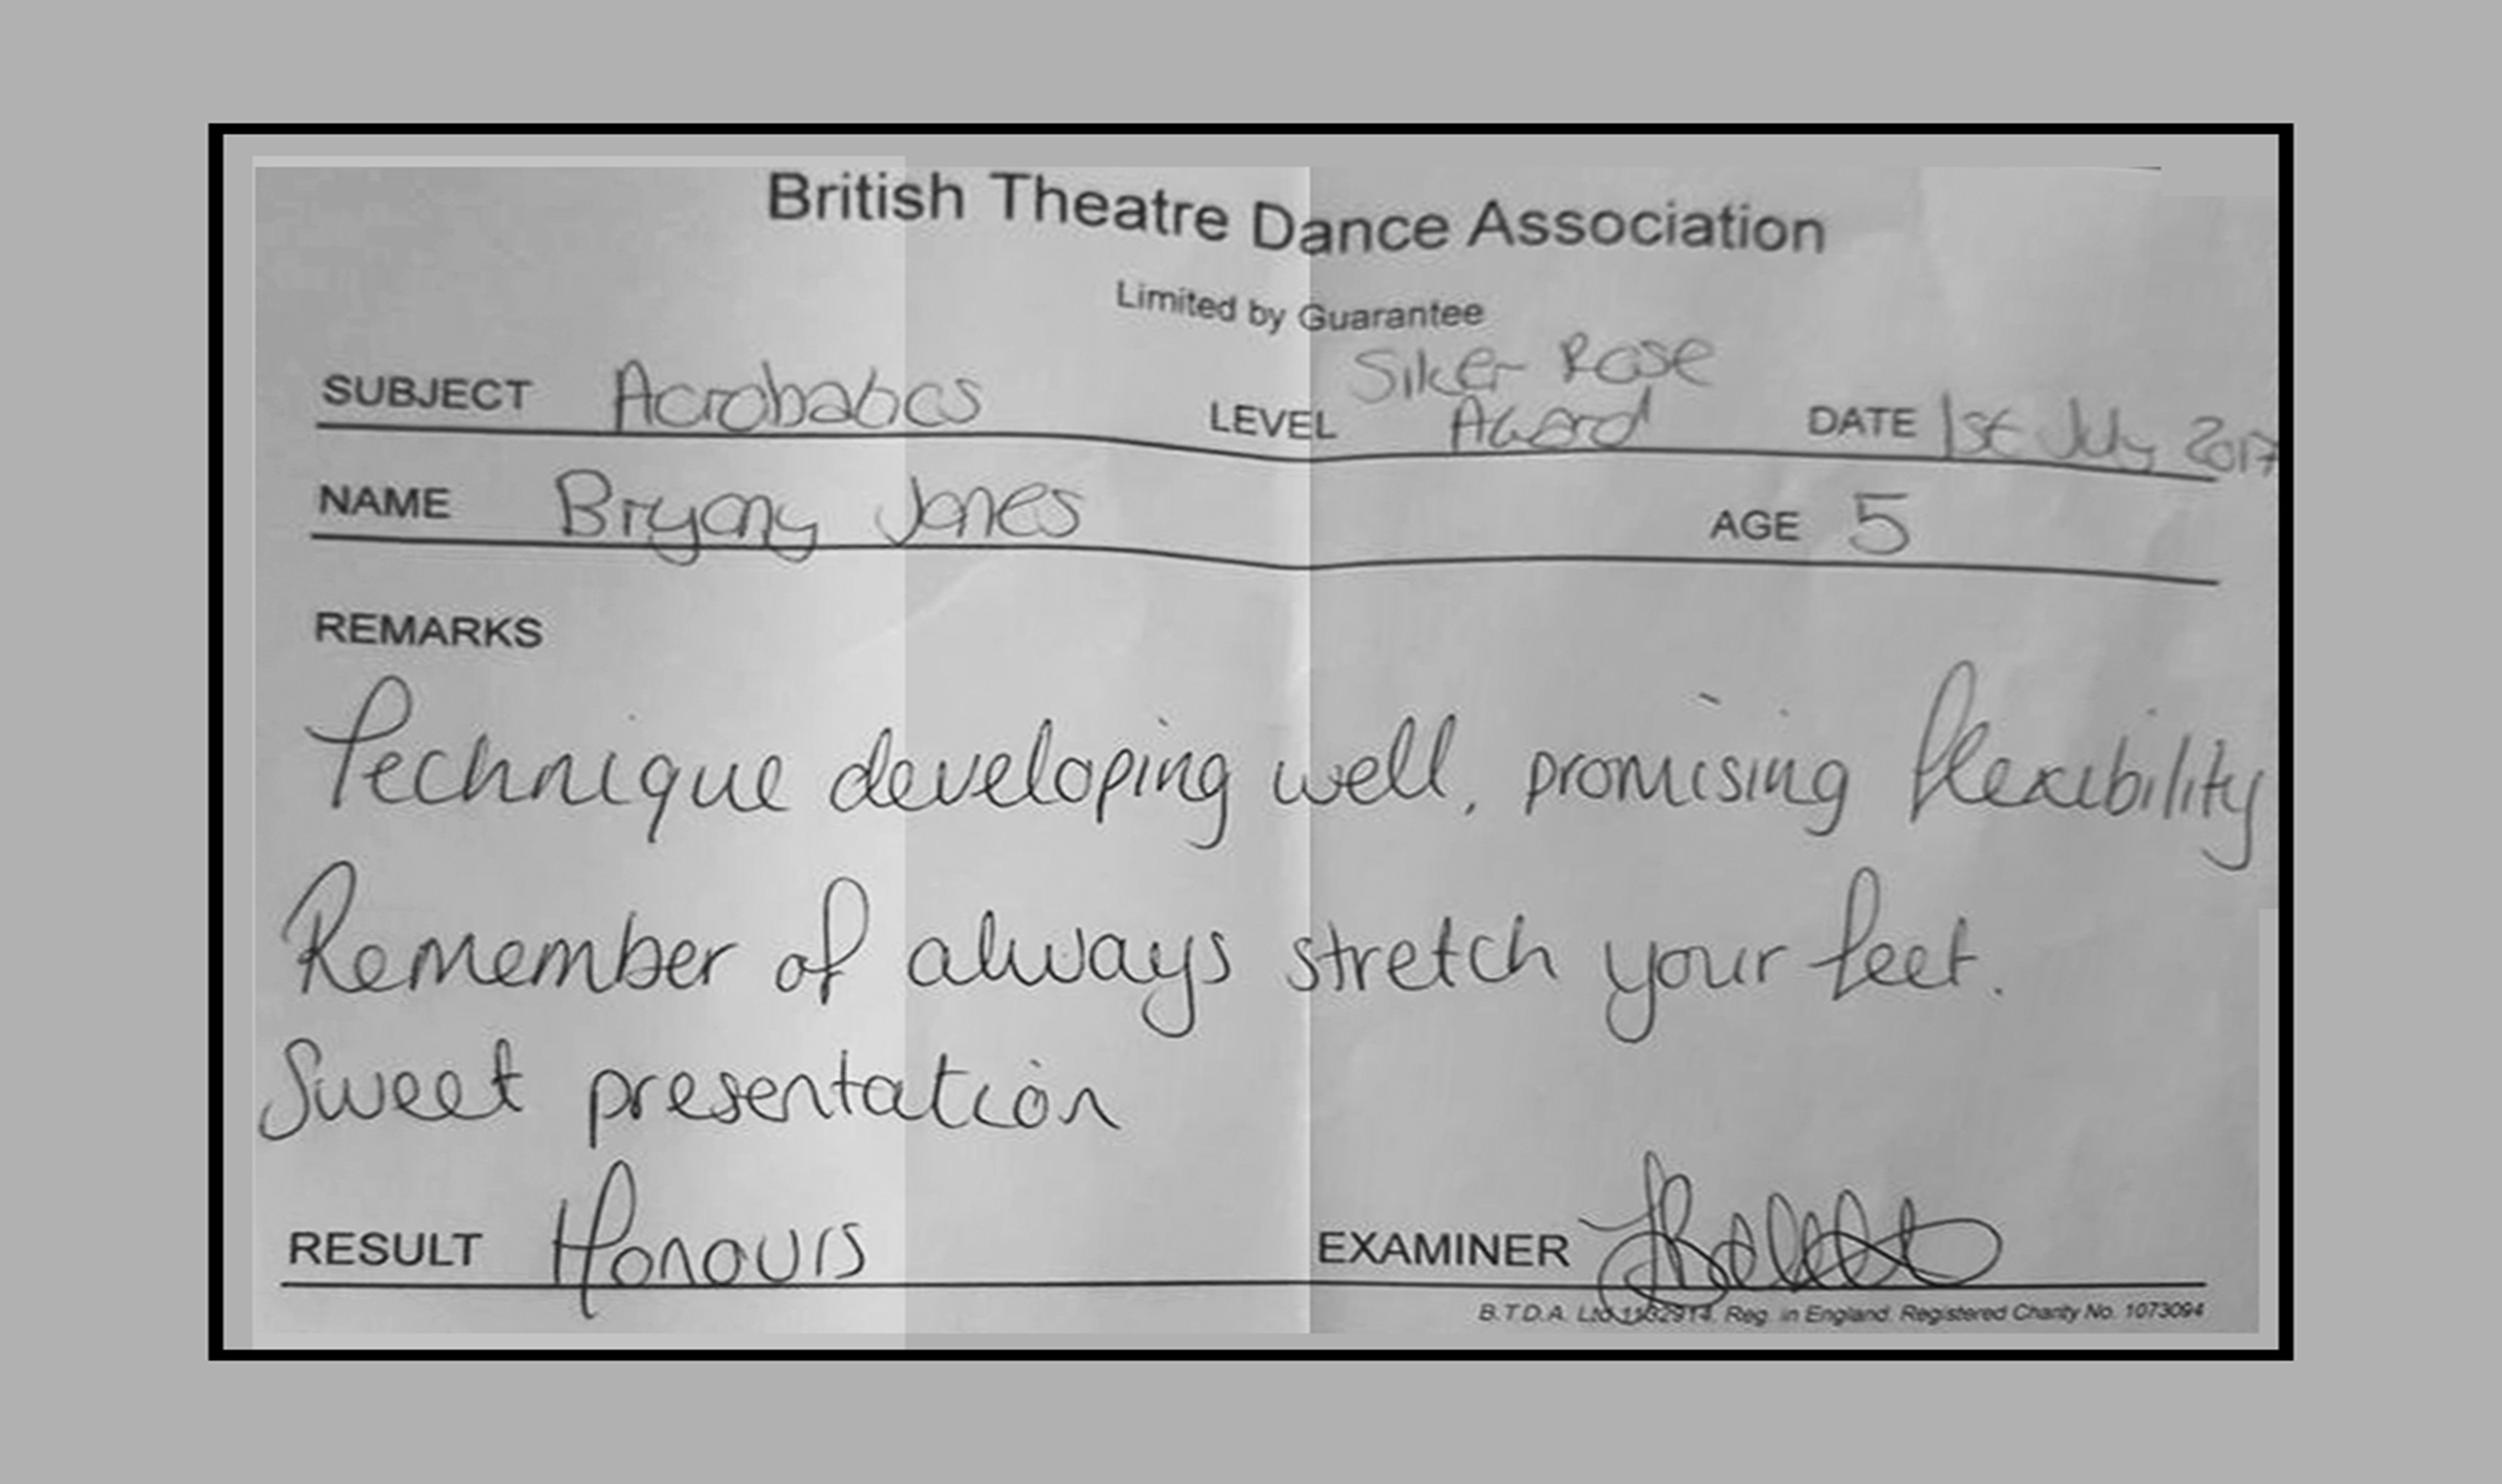 British Theatre Dance Association
Limited by Guarantee
SUBJECT Acrobatics LEVEL Silver Rose Award DATE 1st July 2017
NAME Bryany Jones AGE 5
REMARKS
Technique developing well, promising flexibility
Remember of always stretch your feet.
Sweet presentation
RESULT Honours EXAMINER
B.T.D.A. Ltd 1132914. Reg. in England. Registered Charity No. 1073094